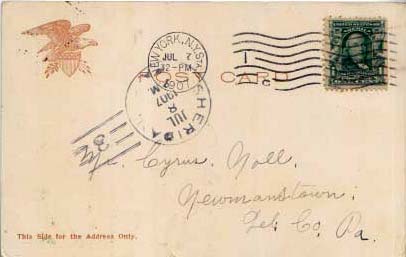 NEW YORK, N.Y. STA.
JUL 7
12-PM
1907
1
C
POST CARD
SHERIDAN
JUL
8
M
1907
Mr. Cyrus Noll.
Newmanstown.
Leb. Co. Pa.
This Side for the Address Only.